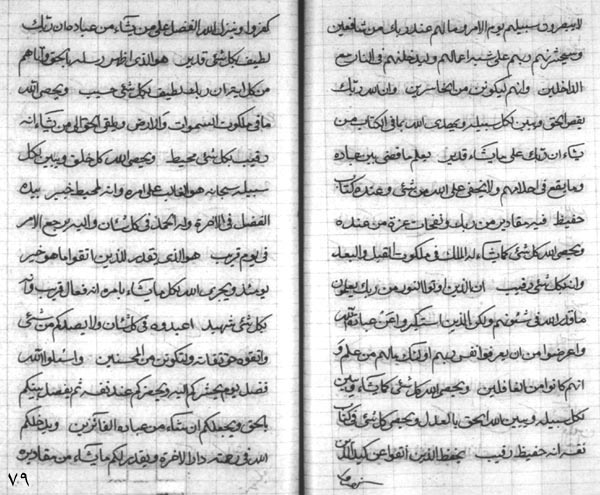 لا يبصرون سبيلهم يوم الامر وما لهم عند ربك من شافعين
وسيحشرنهم ربهم على شبه اعمالهم وليدخلنهم في النار مع
الداخلين وانهم ليكونن من الخاسرين وان الله ربك
يقص الحق ويبين لكل سبيله ويهدى الله بما في الكتاب من
يشاء ان ربك على ما يشاء قدير يعلم ما قضى بين عباده
وما يقع في احلامهم ولا يخفى على الله من شئ وعنده كتاب
حفيظ فيه مقادير من ربك ونفحات عزة من عنده
ويحصى الله كل شئ كما يشاء له الملك في ملكوت القبل والبعد
وانه بكل شئ رقيب ان الذين اوتوا النور من ربك يعلمون
ما قدر الله في شئونهم ولكن الذين استكبروا عن عبادة الله
واعرضوا من ان يعرفوا نفس ربهم اولئك ما لهم من علم و
انهم كانوا من الغافلين ويحصى الله كل شئ كما يشاء ويبين
لكل سبيله ويبين الله الحق بالعدل ويحصى كل شئ في كتاب
نفسه انه حفيظ رقيب يحفظ الذين اتقوا عن كيد الذين
كفروا وينزل الله الفضل على من يشاء من عباده ان ربك
لطيف بكل شئ قدير هو الذى ارسل رسله بالحق واتاهم
من كل ان ربك لطيف بكل شئ حسيب ويحصى الله
ما في ملكوت السموات والارض ويلقى الحق الى من يشاء انه
رقيب بكل شئ محيط ويحصى الله كل خلق ويبين لكل
سبيله سبحانه هو الغالب على امره وانه لمحيط خبير بيده
الفضل في الاخرة وله الحمد في كل شان واليه يرجع الامر
في يوم قريب هو الذى يقدر للذين اتقوا ما هو خير
يومئذ ويجزى الله كل ما يشاء بامره انه فعال قريب وانه
بكل شئ شهيد اعبدوه في كل شان ولا يصدكم من شئ
واتقوه حق تقاته ولتكونن من المحسنين واسئلوا الله
فضل يوم يحشركم اليه ويحضركم عند نفسه ثم يفصل بينكم
بالحق ويجعلكم ان شاء من عباده الفائزين ويدخلكم
الله في رحمته دار الاخرة ويقدر لكم ما يشاء من مقاديره
٧٩